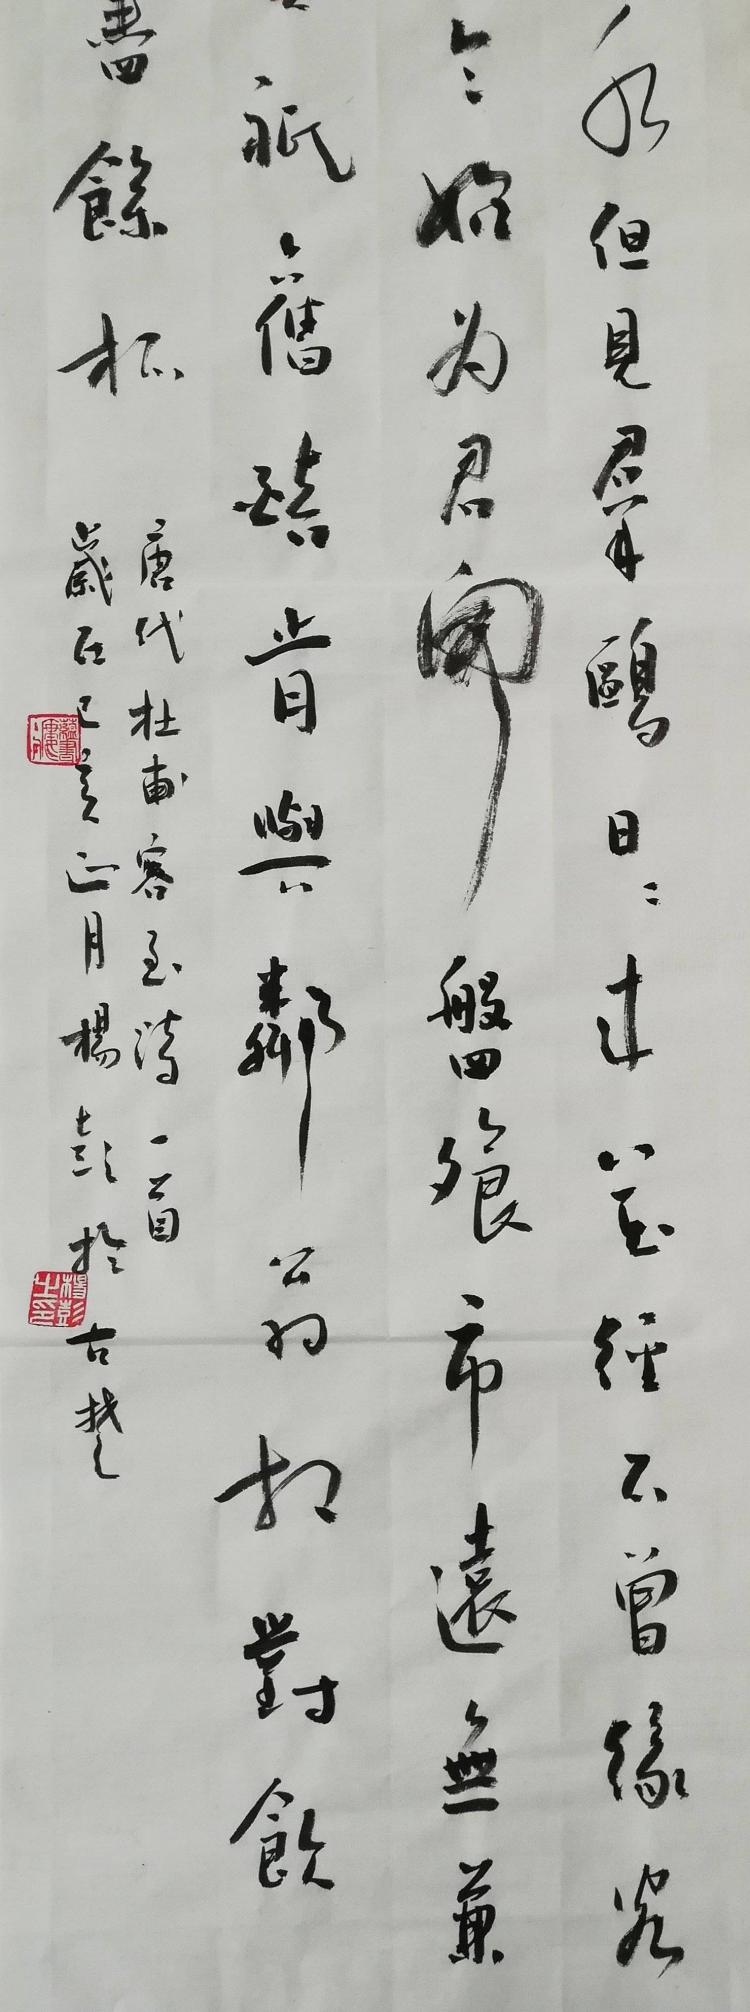 水但見羣鷗日〻来花徑不曾緣客
今始为君開盤飧市遠無兼
祗舊醅肯與鄰翁相對飲
盡餘杯
唐代杜甫客至詩一首
歲在己亥正月楊彭於古楚
楊彭之印